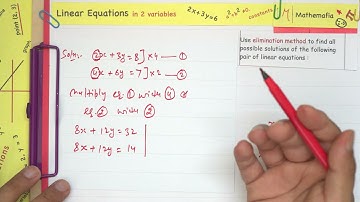 Linear Equations in 2 variables
2x+3y=6
constants
Mathemafia
Use elimination method to find all
possible solutions of the following
pair of linear equations :
Soln:
2x + 3y = 8] × 4 — ①
4x + 6y = 7] × 2 — ②
multiply eq. ① with 4 &
eq. ② with ②
8x + 12y = 32
8x + 12y = 14